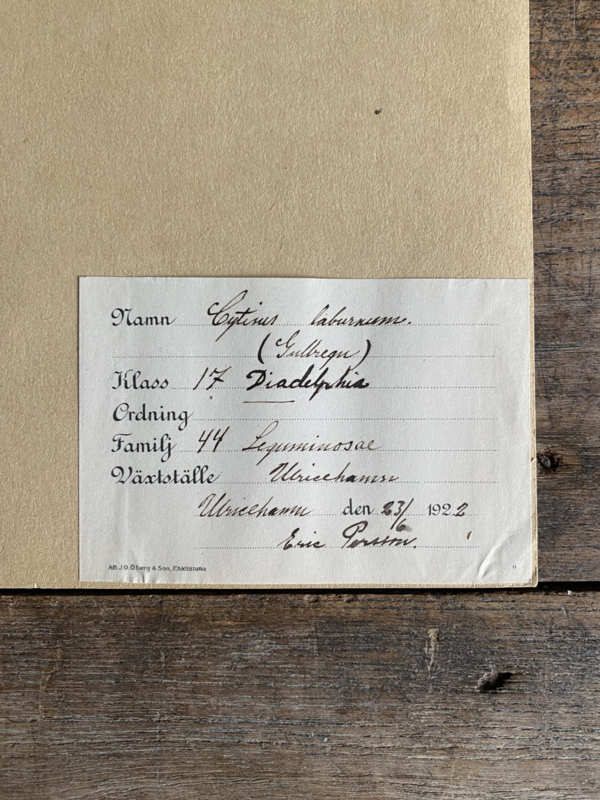 Namn Cytisus laburnum.
(Gullregn)
Klass 17 Diadelphia
Ordning
Familj 44 Leguminosae
Växtställe Ulricehamn
Ulricehamn den 23/6 1922
Eric Persson.
AB. J.O. Öberg & Son, Eskilstuna